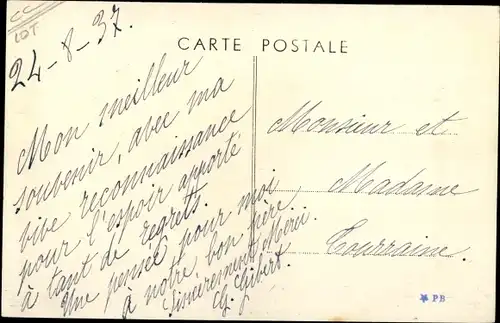 LOT
24-8-37.
CARTE POSTALE
Mon meilleur
souvenir, avec ma
vive reconnaissance
pour l'espoir apporté
à tant de regrets.
Une pensée pour moi
à notre bon frère,
Sincèrement Merci.
G. Gibert.
Monsieur et
Madame
Tourraine.
PB